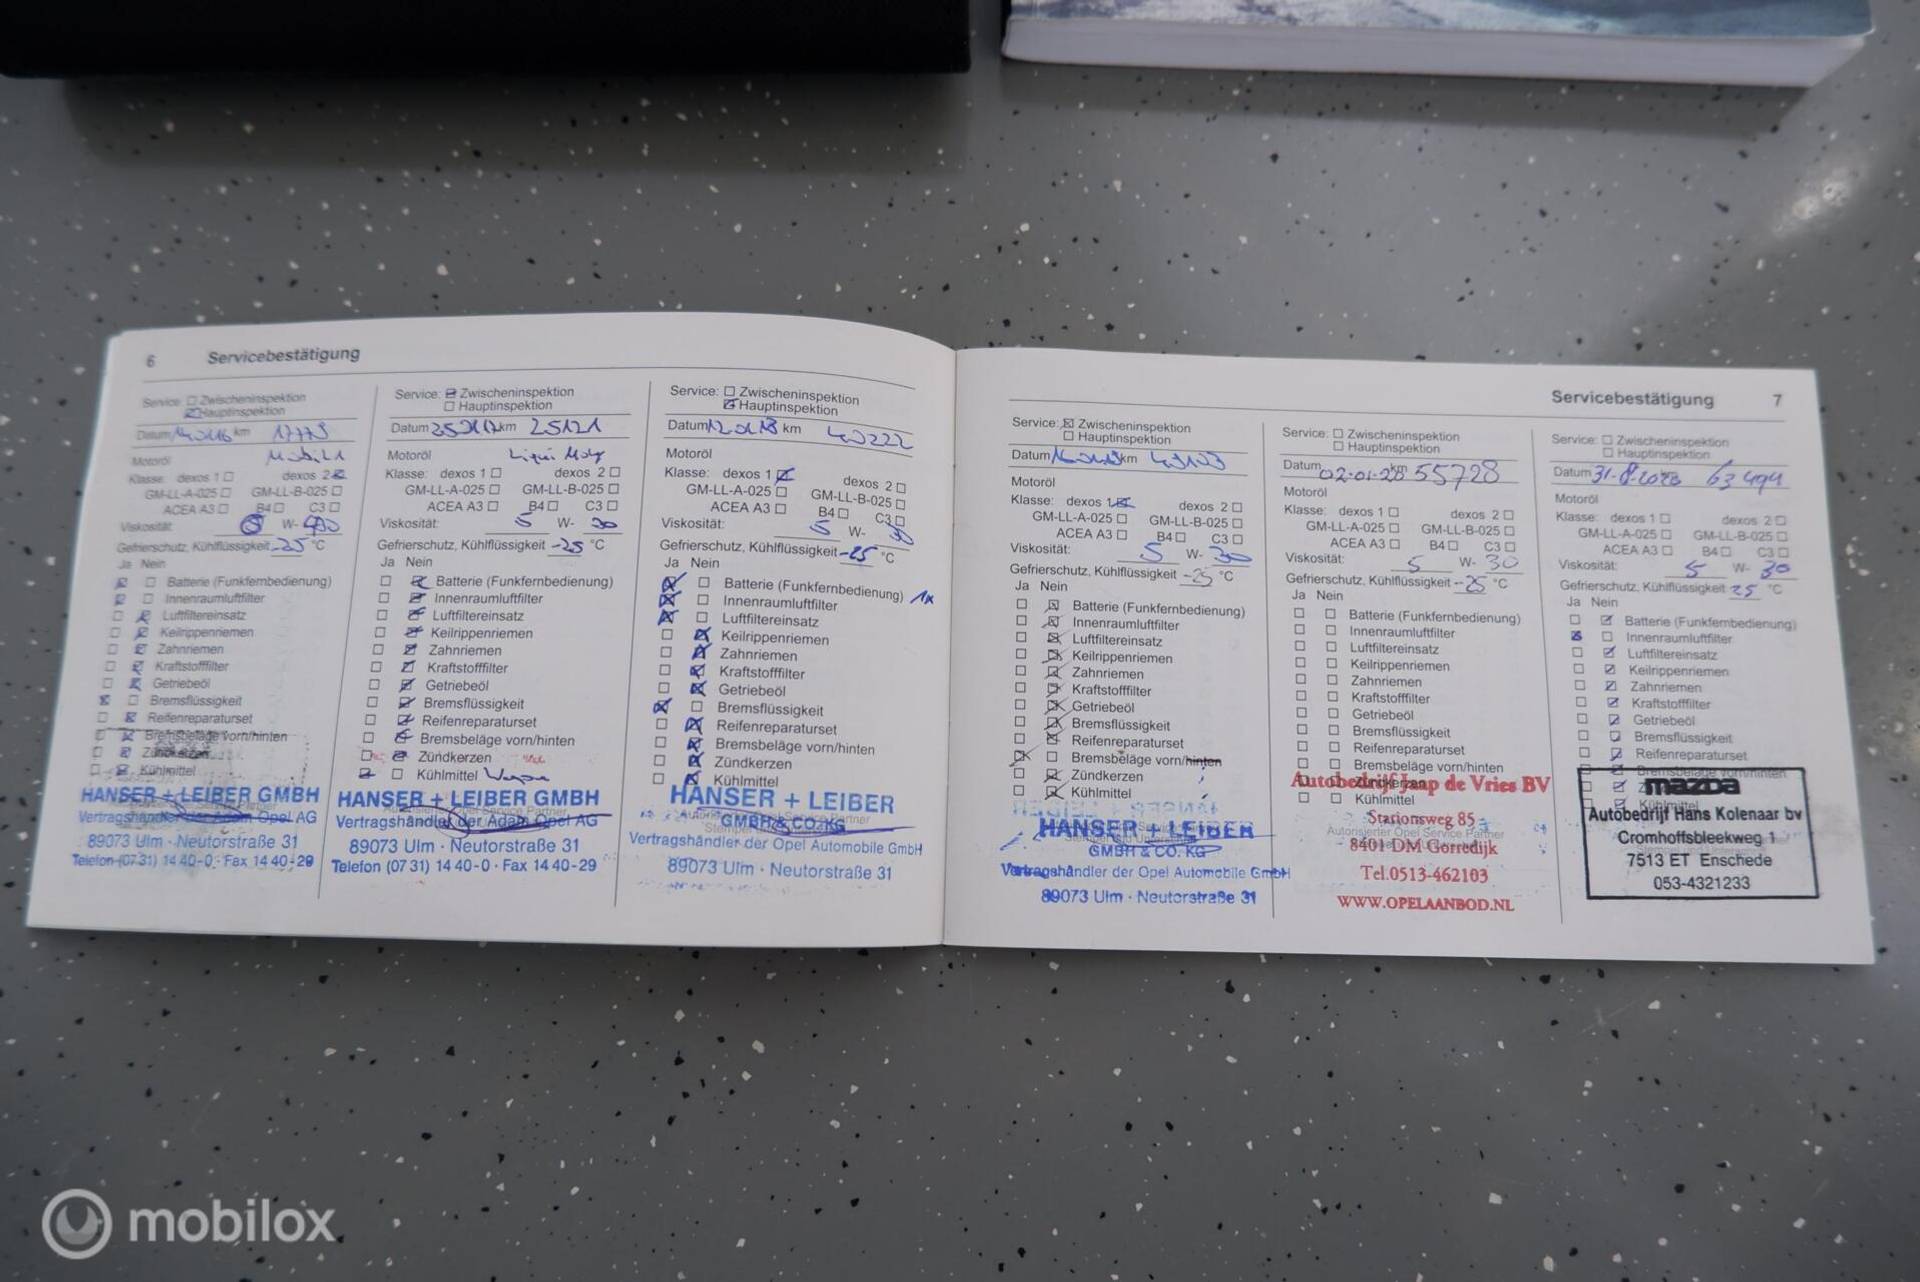 6 Servicebestätigung
Service: Zwischeninspektion
Hauptinspektion
Datum km 17778
Motoröl Mobil 1
Klasse: dexos 1 dexos 2
GM-LL-A-025 GM-LL-B-025
ACEA A3 B4 C3
Viskosität: W-
Gefrierschutz, Kühlflüssigkeit -25 °C
Ja Nein
Batterie (Funkfernbedienung)
Innenraumluftfilter
Luftfiltereinsatz
Keilrippenriemen
Zahnriemen
Kraftstofffilter
Getriebeöl
Bremsflüssigkeit
Reifenreparaturset
Bremsbeläge vorn/hinten
Zündkerzen
Kühlmittel
HANSER + LEIBER GMBH
Vertragshändler der Adam Opel AG
89073 Ulm · Neutorstraße 31
Telefon (07 31) 14 40-0 · Fax 14 40-29
Service: Zwischeninspektion
Hauptinspektion
Datum km 25121
Motoröl Liqui Moly
Klasse: dexos 1 dexos 2
GM-LL-A-025 GM-LL-B-025
ACEA A3 B4 C3
Viskosität: 5 W- 30
Gefrierschutz, Kühlflüssigkeit -25 °C
Ja Nein
Batterie (Funkfernbedienung)
Innenraumluftfilter
Luftfiltereinsatz
Keilrippenriemen
Zahnriemen
Kraftstofffilter
Getriebeöl
Bremsflüssigkeit
Reifenreparaturset
Bremsbeläge vorn/hinten
Zündkerzen
Kühlmittel
HANSER + LEIBER GMBH
Vertragshändler der Adam Opel AG
89073 Ulm · Neutorstraße 31
Telefon (07 31) 14 40-0 · Fax 14 40-29
Service: Zwischeninspektion
Hauptinspektion
Datum km 40222
Motoröl
Klasse: dexos 1 dexos 2
GM-LL-A-025 GM-LL-B-025
ACEA A3 B4 C3
Viskosität: 5 W- 30
Gefrierschutz, Kühlflüssigkeit -25 °C
Ja Nein
Batterie (Funkfernbedienung) 1x
Innenraumluftfilter
Luftfiltereinsatz
Keilrippenriemen
Zahnriemen
Kraftstofffilter
Getriebeöl
Bremsflüssigkeit
Reifenreparaturset
Bremsbeläge vorn/hinten
Zündkerzen
Kühlmittel
HANSER + LEIBER
GMBH & CO. KG
Vertragshändler der Opel Automobile GmbH
89073 Ulm · Neutorstraße 31
Servicebestätigung 7
Service: Zwischeninspektion
Hauptinspektion
Datum km
Motoröl
Klasse: dexos 1 dexos 2
GM-LL-A-025 GM-LL-B-025
ACEA A3 B4 C3
Viskosität: 5 W- 30
Gefrierschutz, Kühlflüssigkeit -25 °C
Ja Nein
Batterie (Funkfernbedienung)
Innenraumluftfilter
Luftfiltereinsatz
Keilrippenriemen
Zahnriemen
Kraftstofffilter
Getriebeöl
Bremsflüssigkeit
Reifenreparaturset
Bremsbeläge vorn/hinten
Zündkerzen
Kühlmittel
HANSER + LEIBER
GMBH & CO. KG
Vertragshändler der Opel Automobile GmbH
89073 Ulm · Neutorstraße 31
Service: Zwischeninspektion
Hauptinspektion
Datum km 55728
Motoröl
Klasse: dexos 1 dexos 2
GM-LL-A-025 GM-LL-B-025
ACEA A3 B4 C3
Viskosität: 5 W- 30
Gefrierschutz, Kühlflüssigkeit -25 °C
Ja Nein
Batterie (Funkfernbedienung)
Innenraumluftfilter
Luftfiltereinsatz
Keilrippenriemen
Zahnriemen
Kraftstofffilter
Getriebeöl
Bremsflüssigkeit
Reifenreparaturset
Bremsbeläge vorn/hinten
Zündkerzen
Kühlmittel
Autobedrijf Jaap de Vries BV
Stationsweg 85
Autorisierter Opel Service Partner
8401 DM Gorredijk
Tel.0513-462103
WWW.OPELAANBOD.NL
Service: Zwischeninspektion
Hauptinspektion
Datum km 63494
Motoröl
Klasse: dexos 1 dexos 2
GM-LL-A-025 GM-LL-B-025
ACEA A3 B4 C3
Viskosität: 5 W- 30
Gefrierschutz, Kühlflüssigkeit 25 °C
Ja Nein
Batterie (Funkfernbedienung)
Innenraumluftfilter
Luftfiltereinsatz
Keilrippenriemen
Zahnriemen
Kraftstofffilter
Getriebeöl
Bremsflüssigkeit
Reifenreparaturset
Bremsbeläge vorn/hinten
Kühlmittel
mazda
Autobedrijf Hans Kolenaar bv
Cromhoffsbleekweg 1
7513 ET Enschede
053-4321233
mobilox